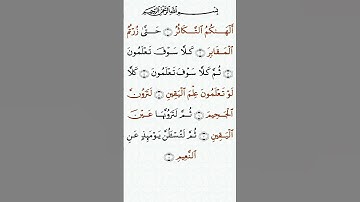 بِسْمِ ٱللَّهِ ٱلرَّحْمَٰنِ ٱلرَّحِيمِ
أَلْهَىٰكُمُ ٱلتَّكَاثُرُ ۝ حَتَّىٰ زُرْتُمُ
ٱلْمَقَابِرَ ۝ كَلَّا سَوْفَ تَعْلَمُونَ
۝ ثُمَّ كَلَّا سَوْفَ تَعْلَمُونَ ۝ كَلَّا
لَوْ تَعْلَمُونَ عِلْمَ ٱلْيَقِينِ ۝ لَتَرَوُنَّ
ٱلْجَحِيمَ ۝ ثُمَّ لَتَرَوُنَّهَا عَيْنَ
ٱلْيَقِينِ ۝ ثُمَّ لَتُسْـَٔلُنَّ يَوْمَئِذٍ عَنِ
ٱلنَّعِيمِ ۝